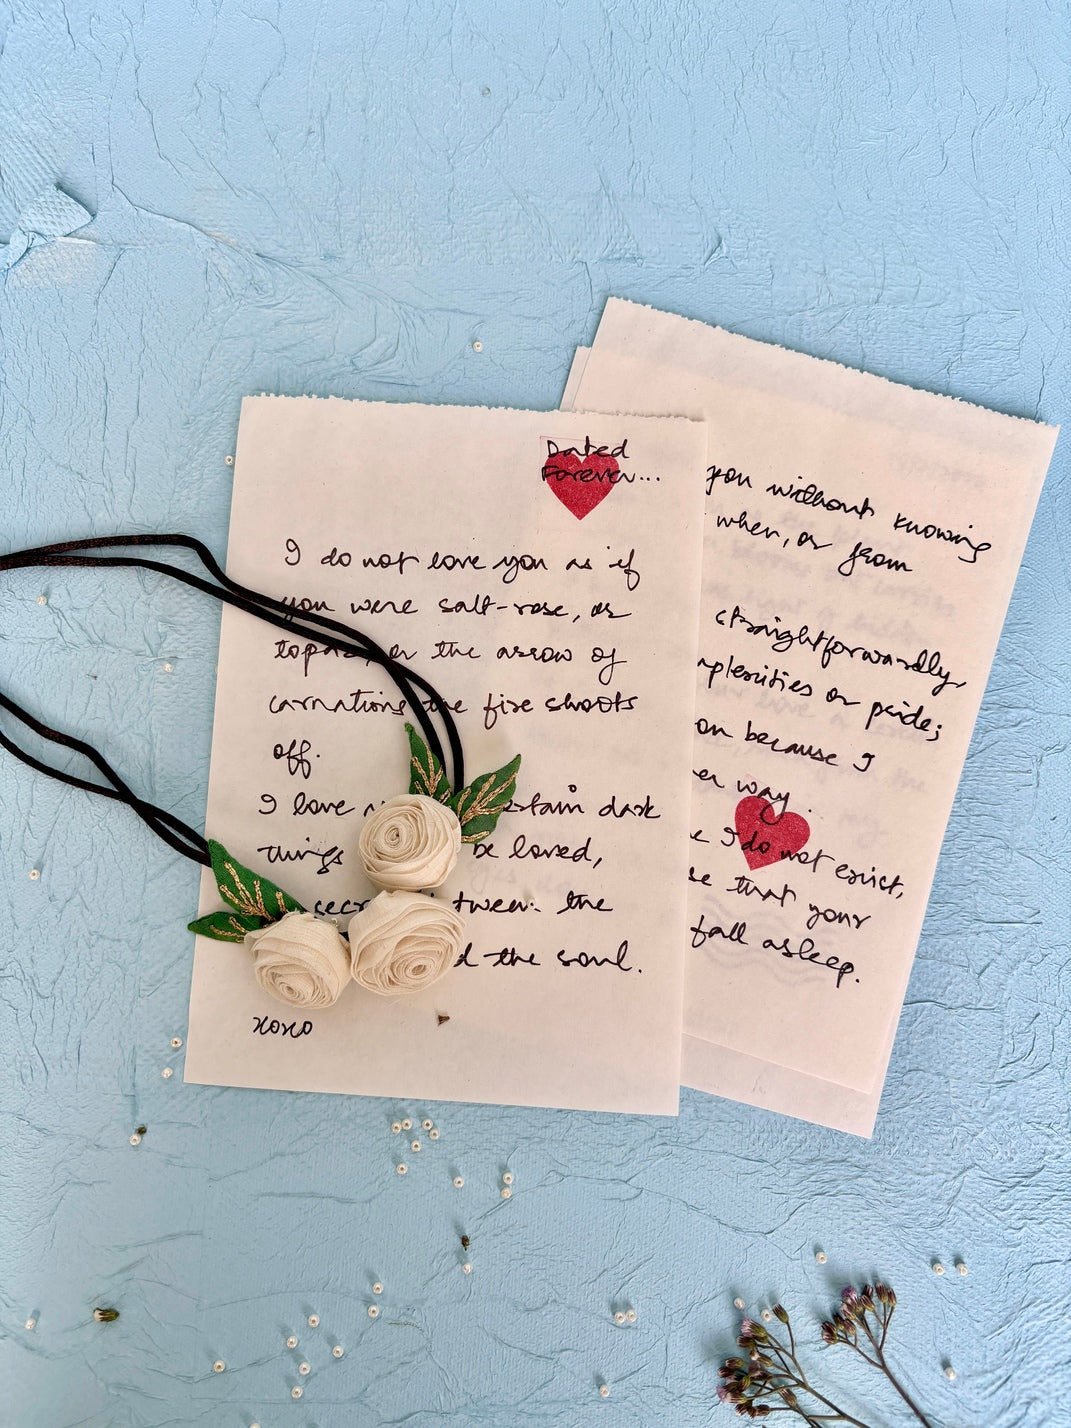 Dated
Forever...
I do not love you as if
you were salt-rose, or
topaz, or the arrow of
carnations the fire shoots
off.
I love certain dark
things be loved,
secret between the
the soul.
xoxo
you without knowing
when, or from
straightforwardly,
mplexities or pride;
because I
way.
I do not exist,
that your
fall asleep.